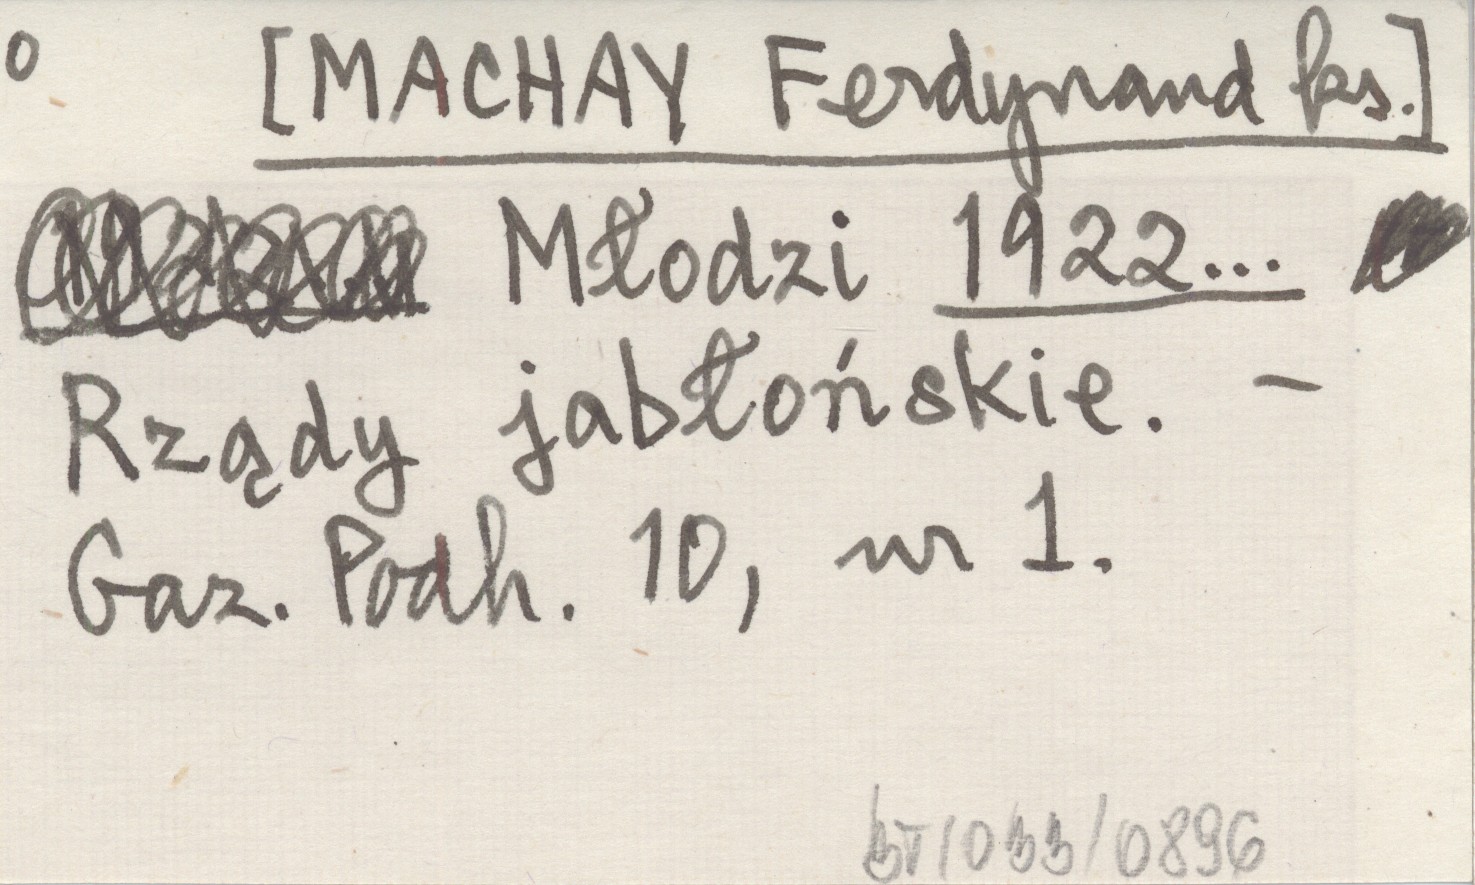 o [MACHAY Ferdynand ks.]
Młodzi 1922...
Rządy jabłońskie. –
Gaz. Podh. 10, nr 1.